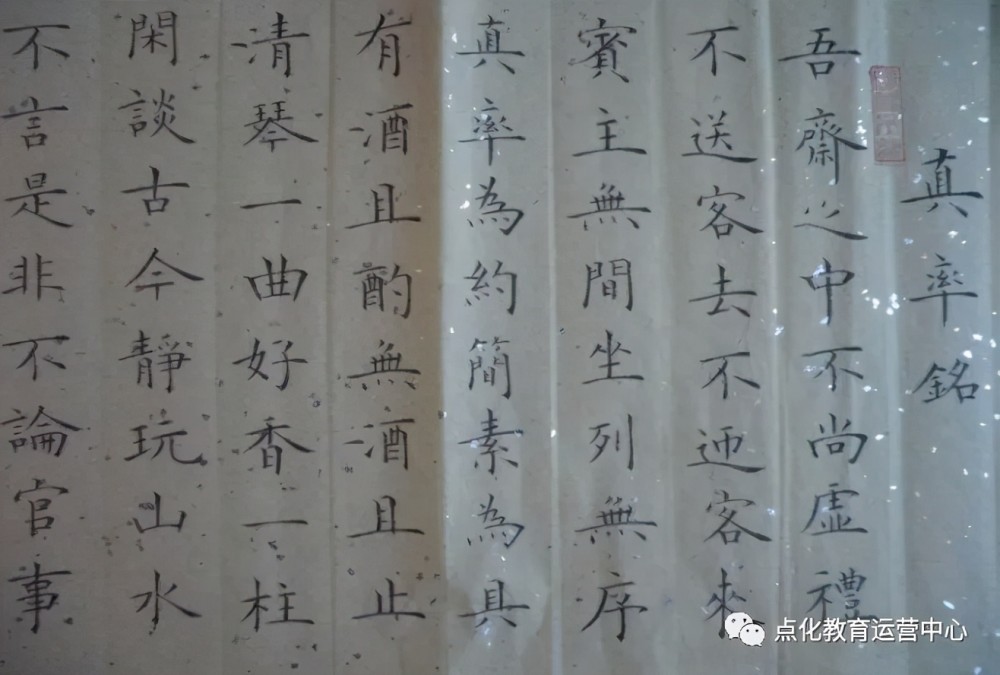 真率銘
吾齋之中不尚虛禮
不送客去不迊客來
賓主無間坐列無序
真率為約簡素為具
有酒且酌無酒且止
清琴一曲好香一柱
閑談古今靜玩山水
不言是非不論官事
点化教育运营中心